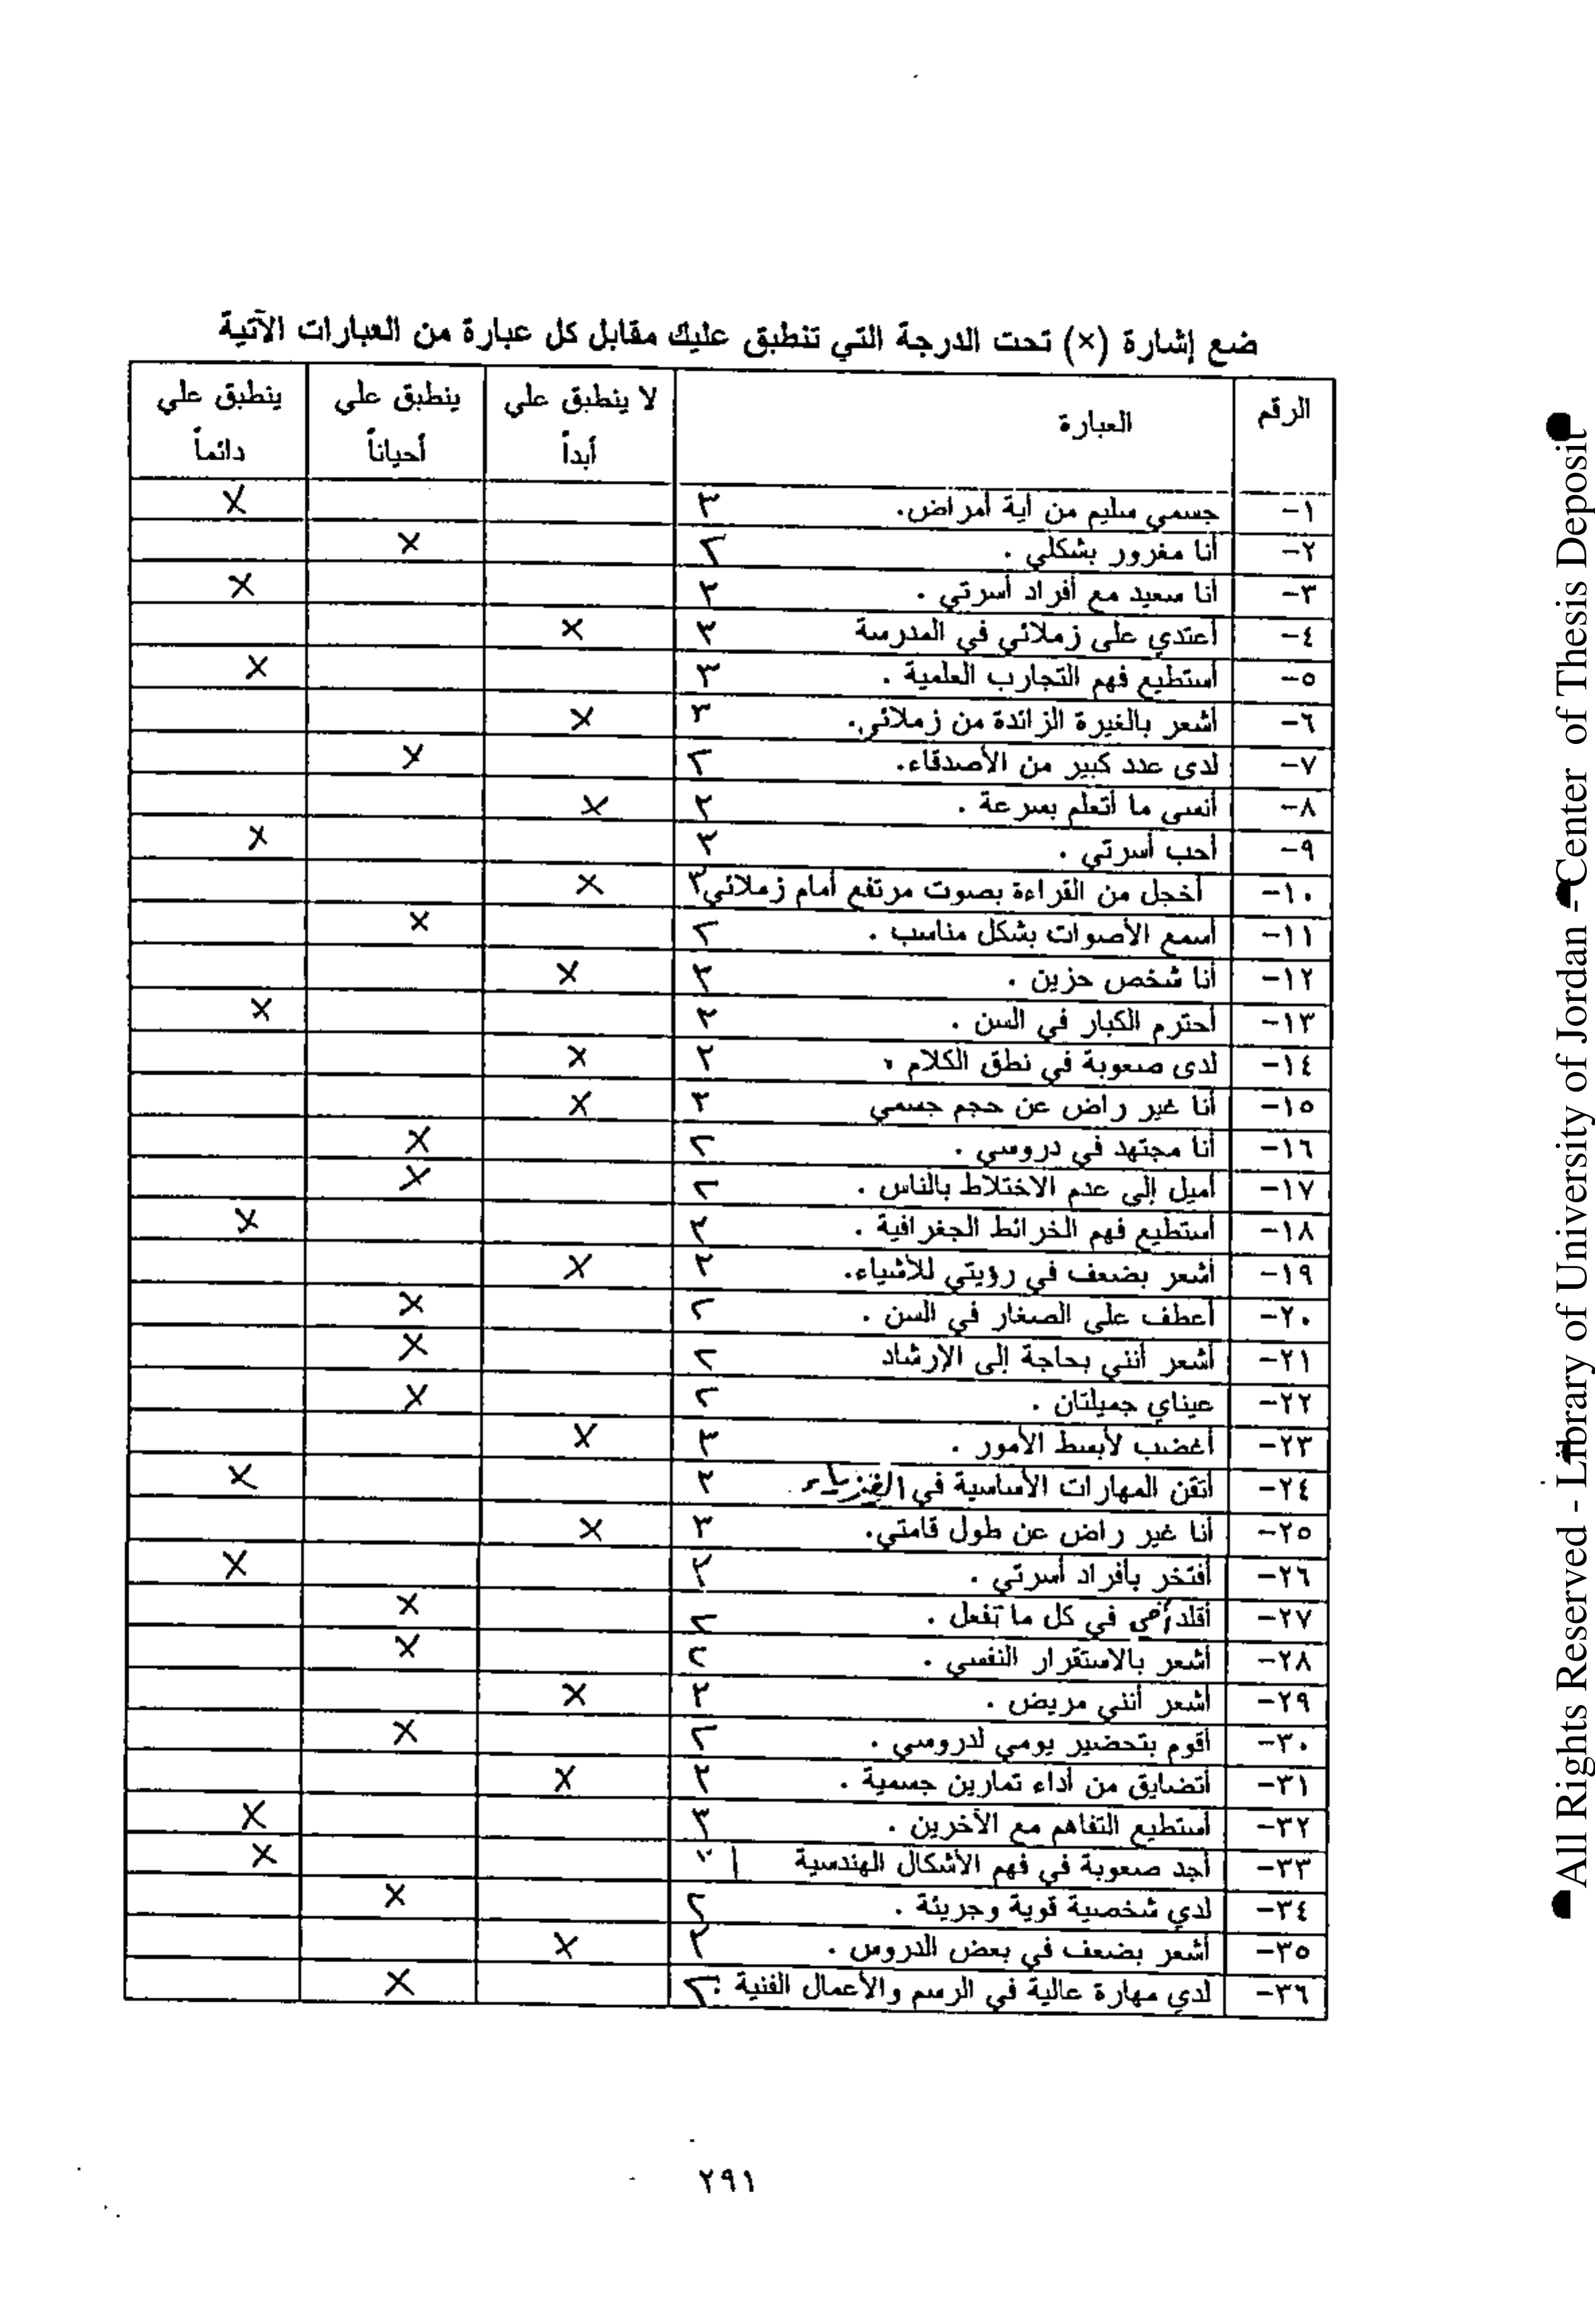 ضع إشارة (×) تحت الدرجة التي تنطبق عليك مقابل كل عبارة من العبارات الآتية
الرقم العبارة لا ينطبق علي أبداً ينطبق علي أحياناً ينطبق علي دائماً
١- جسمي سليم من أية أمراض. ٣ ×
٢- أنا مغرور بشكلي . ٢ ×
٣- أنا سعيد مع أفراد أسرتي . ٣ ×
٤- أعتدي على زملائي في المدرسة ٣ ×
٥- أستطيع فهم التجارب العلمية . ٣ ×
٦- أشعر بالغيرة الزائدة من زملائي. ٣ ×
٧- لدى عدد كبير من الأصدقاء. ٢ ×
٨- أنسى ما أتعلم بسرعة . ٣ ×
٩- أحب أسرتي . ٣ ×
١٠- أخجل من القراءة بصوت مرتفع أمام زملائي ٣ ×
١١- أسمع الأصوات بشكل مناسب . ٢ ×
١٢- أنا شخص حزين . ٣ ×
١٣- أحترم الكبار في السن . ٣ ×
١٤- لدى صعوبة في نطق الكلام . ٣ ×
١٥- أنا غير راض عن حجم جسمي ٣ ×
١٦- أنا مجتهد في دروسي . ٢ ×
١٧- أميل إلى عدم الاختلاط بالناس . ٢ ×
١٨- أستطيع فهم الخرائط الجغرافية . ٣ ×
١٩- أشعر بضعف في رؤيتي للأشياء. ٣ ×
٢٠- أعطف على الصغار في السن . ٢ ×
٢١- أشعر أنني بحاجة إلى الإرشاد ٢ ×
٢٢- عيناي جميلتان . ٢ ×
٢٣- أغضب لأبسط الأمور . ٣ ×
٢٤- أتقن المهارات الأساسية في الفيزياء . ٣ ×
٢٥- أنا غير راض عن طول قامتي. ٣ ×
٢٦- أفتخر بأفراد أسرتي . ٣ ×
٢٧- أقلد أمي في كل ما تفعل . ٢ ×
٢٨- أشعر بالاستقرار النفسي . ٢ ×
٢٩- أشعر أنني مريض . ٣ ×
٣٠- أقوم بتحضير يومي لدروسي . ٢ ×
٣١- أتضايق من أداء تمارين جسمية . ٣ ×
٣٢- أستطيع التفاهم مع الآخرين . ٣ ×
٣٣- أجد صعوبة في فهم الأشكال الهندسية ١ ×
٣٤- لدي شخصية قوية وجريئة . ٢ ×
٣٥- أشعر بضعف في بعض الدروس . ٣ ×
٣٦- لدي مهارة عالية في الرسم والأعمال الفنية . ٢ ×
٢٩١
All Rights Reserved - Library of University of Jordan - Center of Thesis Deposit